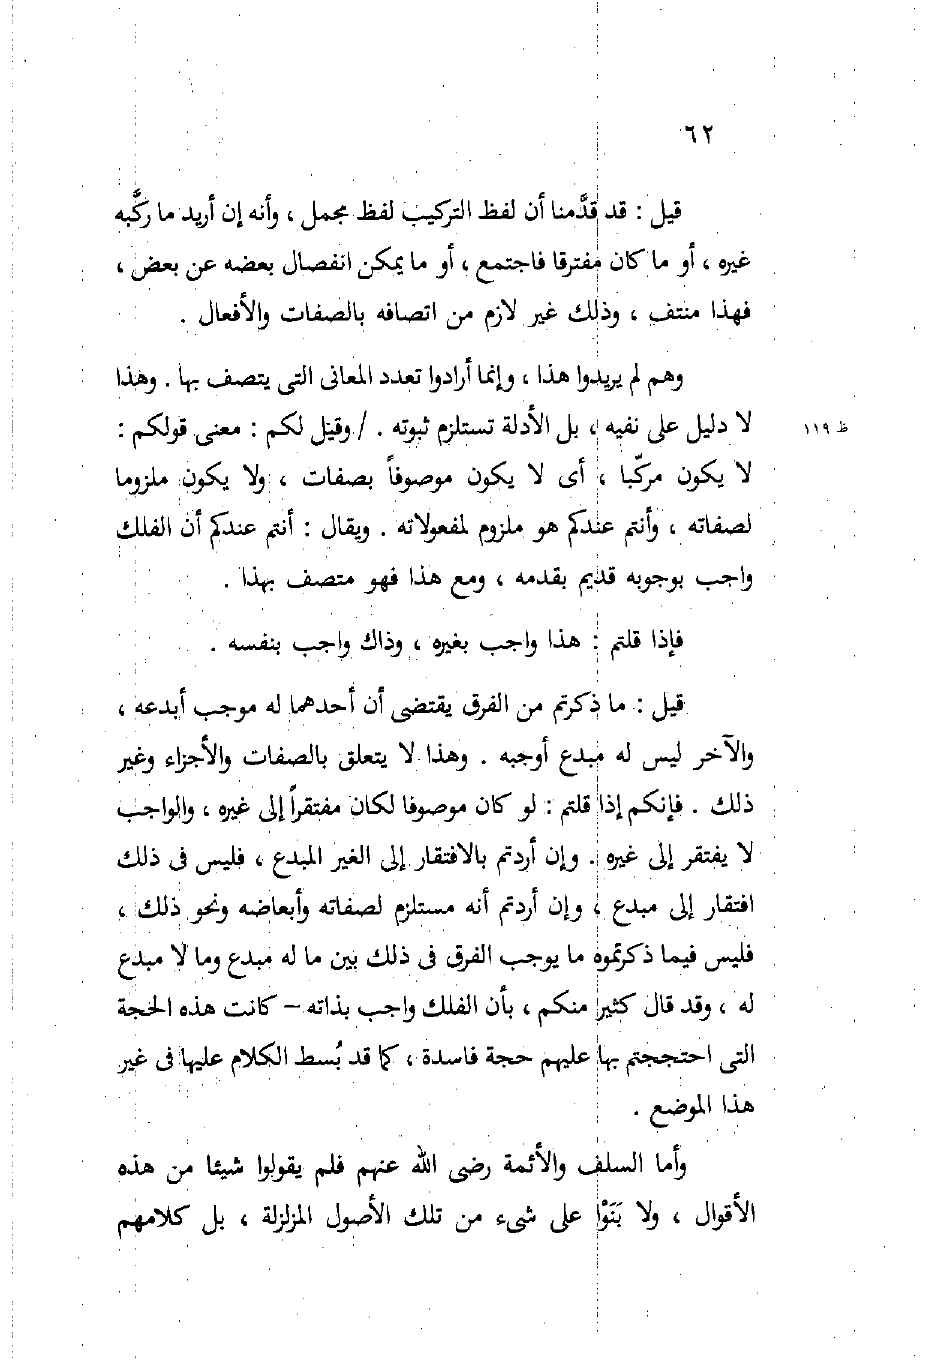 ٦٢
قيل : قد قدَّمنا أن لفظ التركيب لفظ مجمل ، وأنه إن أريد ما ركَّبه
غيره ، أو ما كان مفترقا فاجتمع ، أو ما يمكن انفصال بعضه عن بعض ،
فهذا منتف ، وذلك غير لازم من اتصافه بالصفات والأفعال .
وهم لم يريدوا هذا ، وإنما أرادوا تعدد المعانى التى يتصف بها . وهذا
لا دليل على نفيه ، بل الأدلة تستلزم ثبوته . / وقيل لكم : معنى قولكم :
ظ ١١٩
لا يكون مركّبا ، أى لا يكون موصوفاً بصفات ، ولا يكون ملزوما
لصفاته ، وأنتم عندكم هو ملزوم لمفعولاته . ويقال : أنتم عندكم أن الفلك
واجب بوجوبه قديم بقدمه ، ومع هذا فهو متصف بهذا .
فإذا قلتم : هذا واجب بغيره ، وذاك واجب بنفسه .
قيل : ما ذكرتم من الفرق يقتضى أن أحدهما له موجب أبدعه ،
والآخر ليس له مبدع أوجبه . وهذا لا يتعلق بالصفات والأجزاء وغير
ذلك . فإنكم إذا قلتم : لو كان موصوفا لكان مفتقراً إلى غيره ، والواجب
لا يفتقر إلى غيره . وإن أردتم بالافتقار إلى الغير المبدع ، فليس فى ذلك
افتقار إلى مبدع ، وإن أردتم أنه مستلزم لصفاته وأبعاضه ونحو ذلك ،
فليس فيما ذكرتموه ما يوجب الفرق فى ذلك بين ما له مبدع وما لا مبدع
له ، وقد قال كثير منكم ، بأن الفلك واجب بذاته – كانت هذه الحجة
التى احتججتم بها عليهم حجة فاسدة ، كما قد بُسط الكلام عليها فى غير
هذا الموضع .
وأما السلف والأئمة رضى الله عنهم فلم يقولوا شيئا من هذه
الأقوال ، ولا بَنَوْا على شىء من تلك الأصول المزلزلة ، بل كلامهم